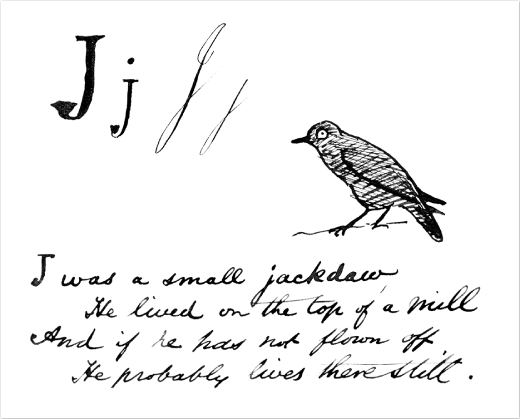 J j J j
J was a small jackdaw
He lived on the top of a mill
And if he has not flown off
He probably lives there still.